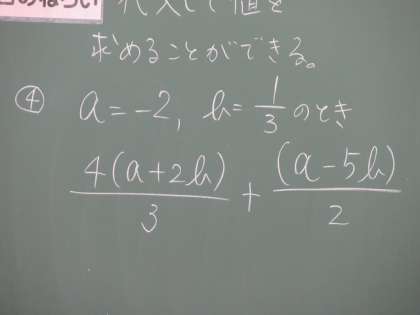 のねらい
代入して値を
求めることができる。
④ a=-2, b=1/3 のとき
4(a+2b)/3 + (a-5b)/2